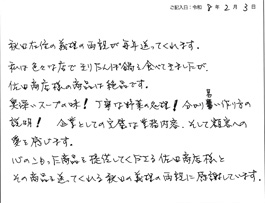 ご記入日:令和 8年 2月 3日
秋田在住の義理の両親が毎年送ってくれます。
私は色々な店できりたんぽ鍋を食べてきましたが、
佐田商店様の商品は絶品です。
奥深いスープの味！丁寧な野菜の処理！分かり易い作り方の
説明！ 企業としての完璧な業務内容、そして顧客への
愛を感じます。
心のこもった商品を提供してくださる佐田商店様と
その商品を送ってくれる秋田の義理の両親に感謝しています。